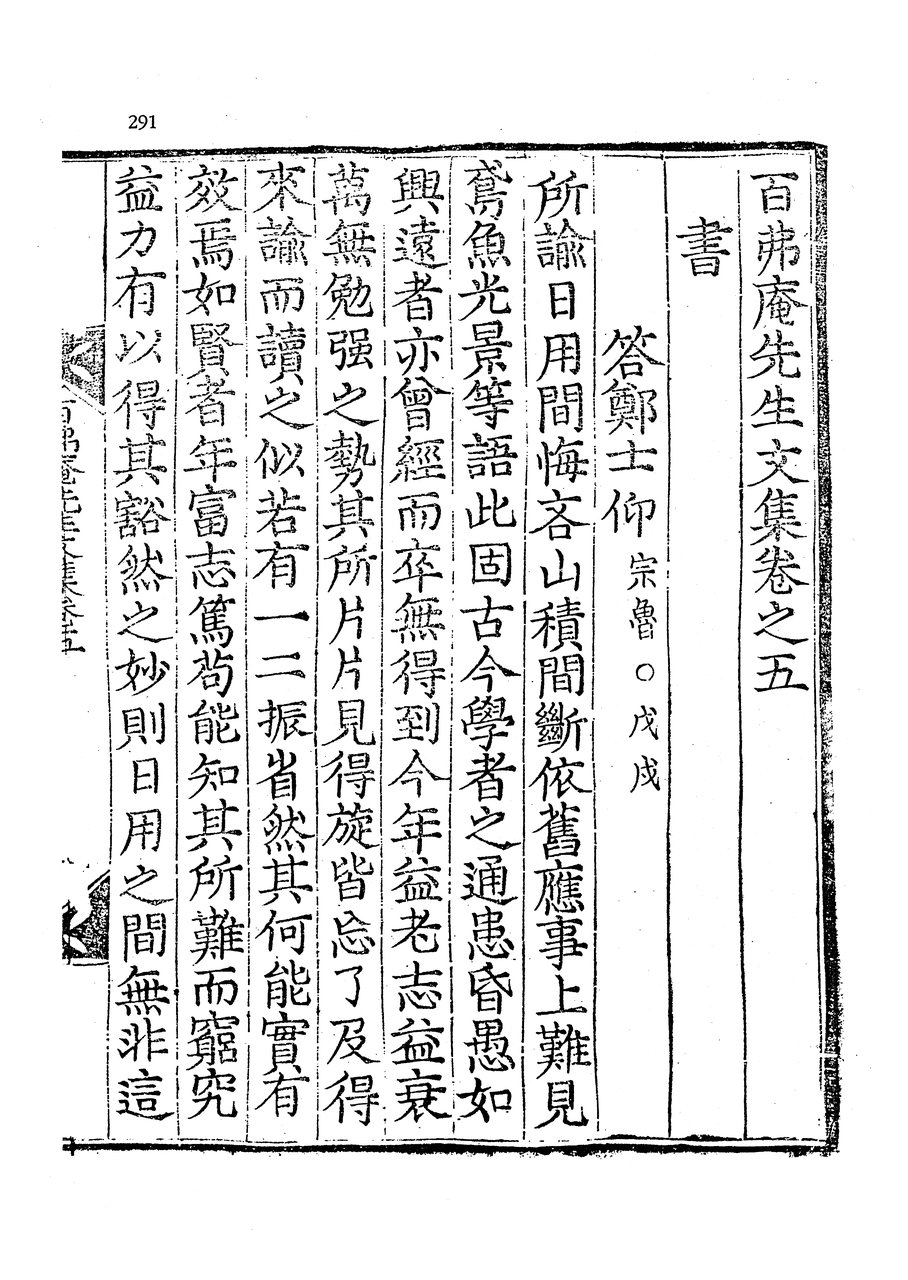 291
百弗庵先生文集卷之五
書
答鄭士仰 宗魯○戊戌
所諭日用間悔吝山積間斷依舊應事上難見
鳶魚光景等語此固古今學者之通患昏愚如
興遠者亦曾經而卒無得到今年益老志益衰
萬無勉强之勢其所片片見得旋皆忘了及得
來諭而讀之似若有一二振省然其何能實有
效焉如賢者年富志篤茍能知其所難而窮究
益力有以得其豁然之妙則日用之間無非這
百弗庵先生文集卷五